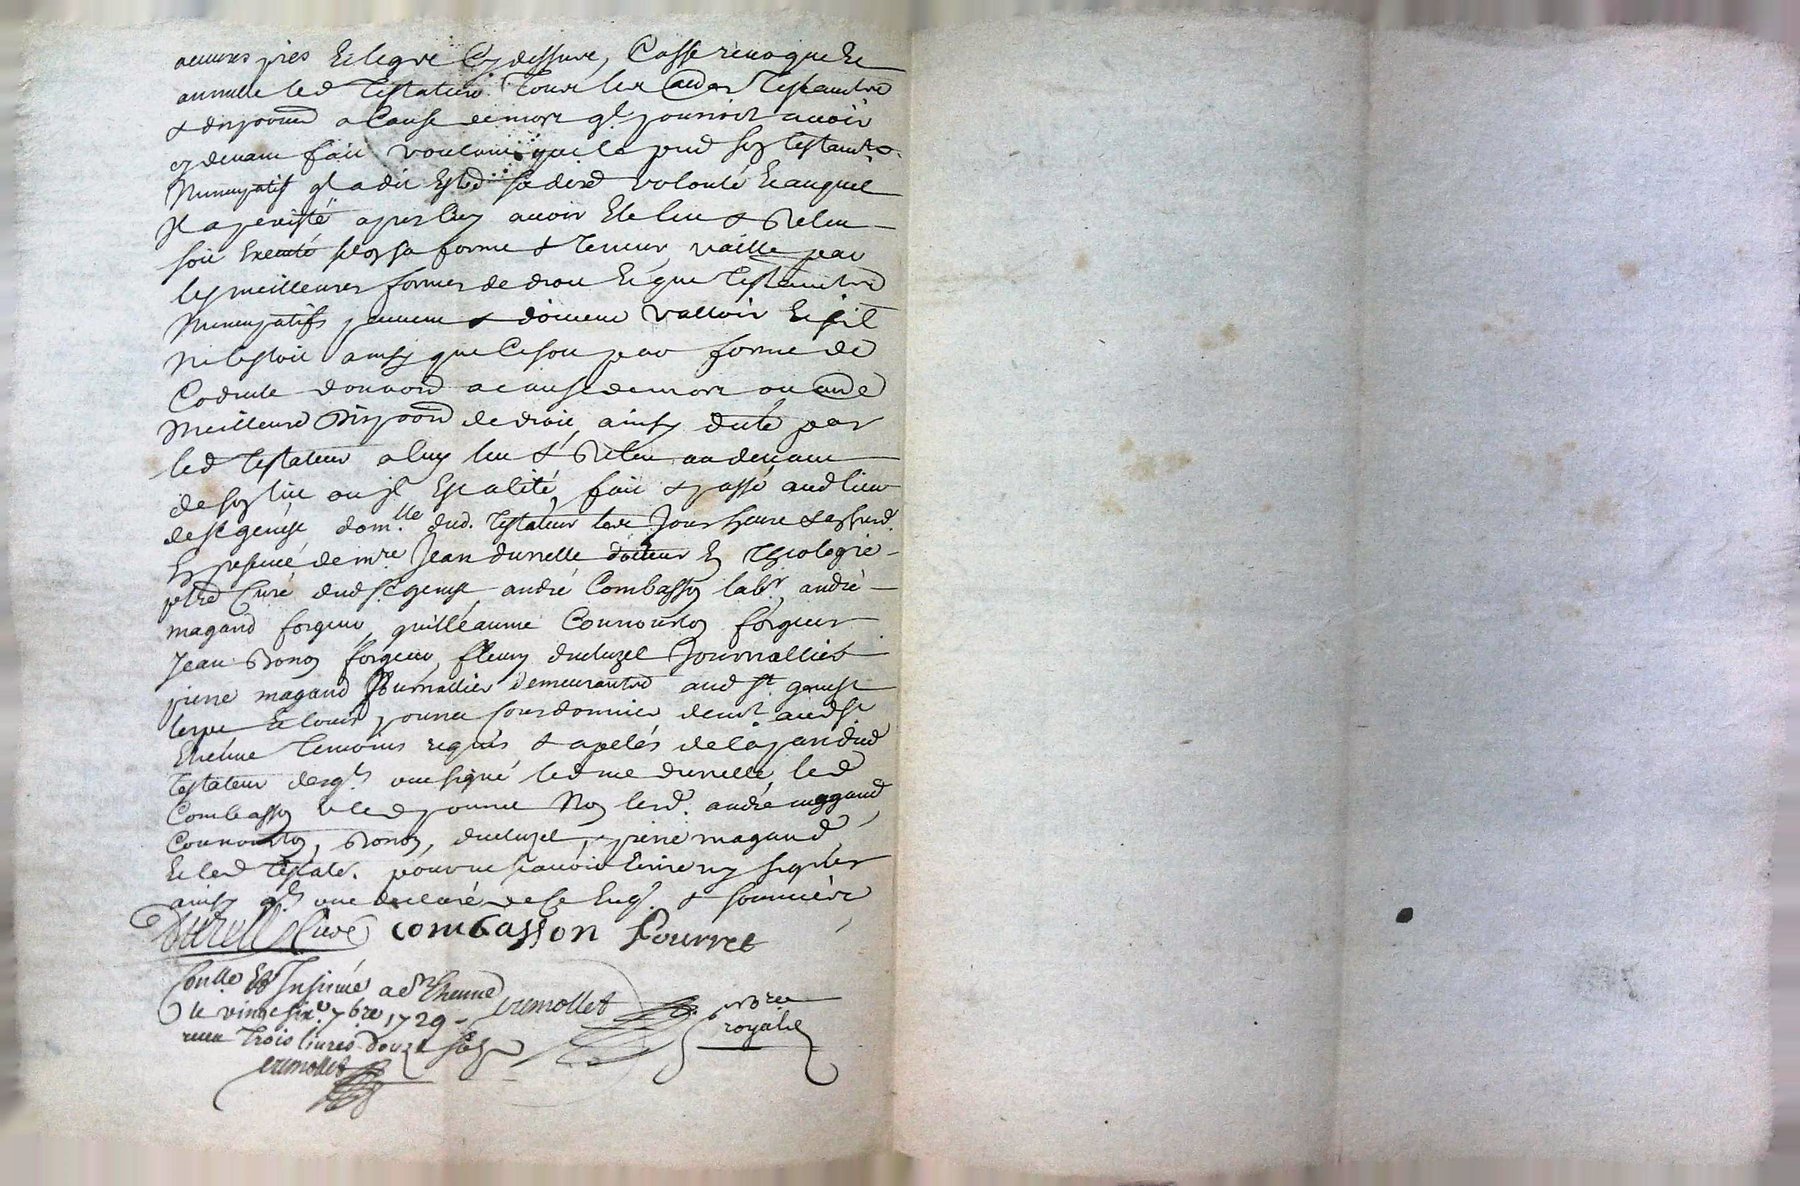 œuvres pies Et legve Cy dessuve, Casse revoque Et
annulle led Testateur Tous les au͠es Testamtz
& disp͠on͠s a Cause de mort ql pourroit avoir
cy devant fait voulant que le pn͠t son testamt
Nuncupatif ql a dit Estre sa dere volonté Et auquel
Il a persisté apres luy avoir Ete leu & Releu
soit Executé selon sa forme & teneur, vaille par
les meilleures formes de droit Et que Testamtz
Nuncupatifs peuvent & doivent valloir Et s'il
ne Estoit ainsy que Ce soit par forme de
Codicile donna͠on a cause de mort ou au͠e
Meilleure Disp͠on de droit, ainsy dicté par
led Testateur a luy leu & Releu au devant
de son lit ou jl Est alité, fait & passé aud lieu
de st genest, domlle dud. Testateur les Jour heure & an susd.
En presence de mre Jean durelle docteur En Theologie
ptre Curé dud st genest, andré Combasson labr, andré
magand forgeur, guilleaume Couvourdon forgeur
Jean Bonon forgeur, fleury ducluzel Journallier
piere magand Journallier demeurantz aud st genest
lerpt Et louis pourret Cordonnier demt aud st
Etienne Temoins requis & apelés de la part dud
Testateur desqls ont signé led mre durelle, led
Combasson & led pourret Non lesd. andré maggand
Couvourdon, Bonon, ducluzel, piere magand
Et led Testatr. pour ne scavoir Ecrire ny signer
ainsy qls ont declaré de Ce Enqs & sommés
Durelle Curé combasson Pourret
Conllé Et Insinué a st Etienne
le vingt six 7bre 1729 cremollet
recu Trois livres douze sols
cremollet
no͠re
royal